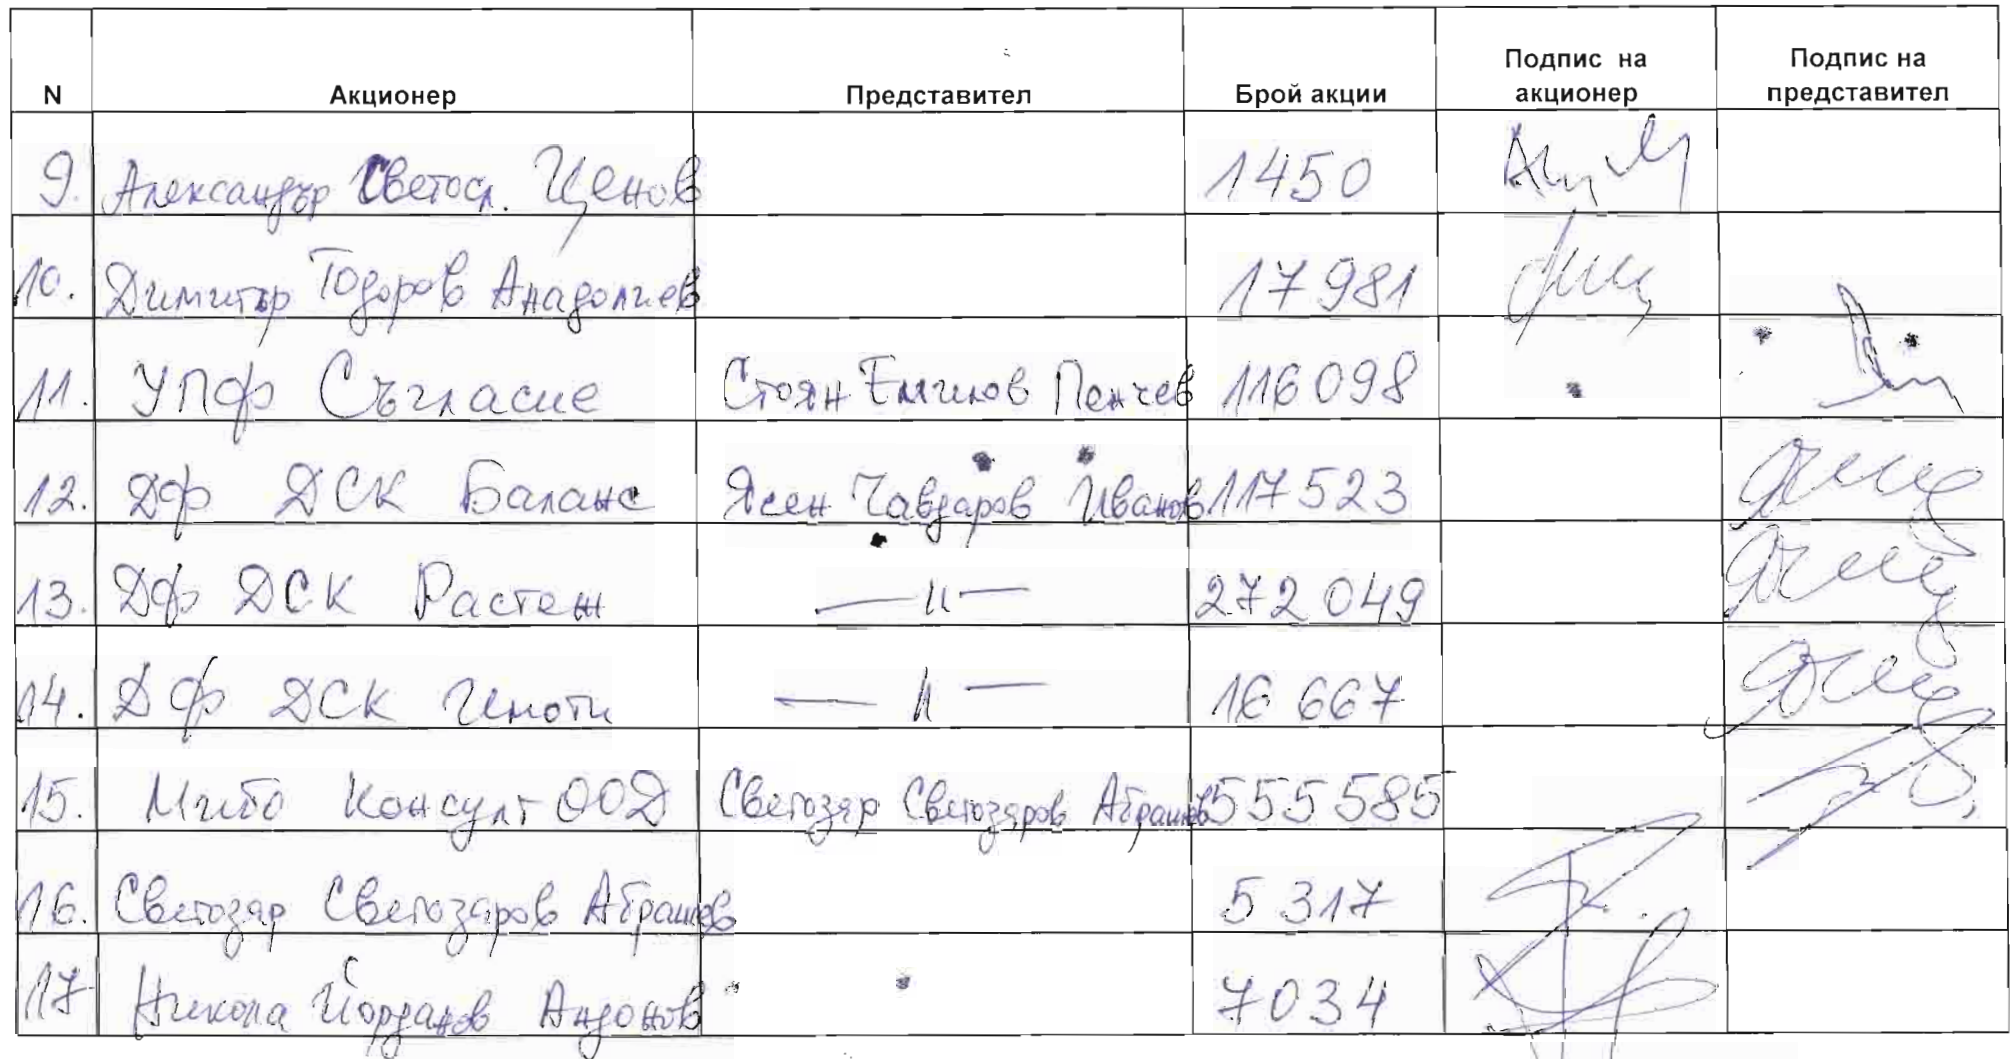 N Акционер Представител Брой акции Подпис на акционер Подпис на представител
9. Александър Светосл. Ценов 1450
10. Димитър Тодоров Анадолиев 17981
11. УПФ Съгласие Стоян Емилов Пенчев 116098
12. ДФ ДСК Баланс Ясен Чавдаров Иванов 117523
13. ДФ ДСК Растеж —〃— 272 049
14. ДФ ДСК Имоти —〃— 16 667
15. Консулт ООД Светозар Светозаров Абрашев 555 585
16. Светозар Светозаров Абрашев 5 317
17 Никола Йорданов Андонов 7034